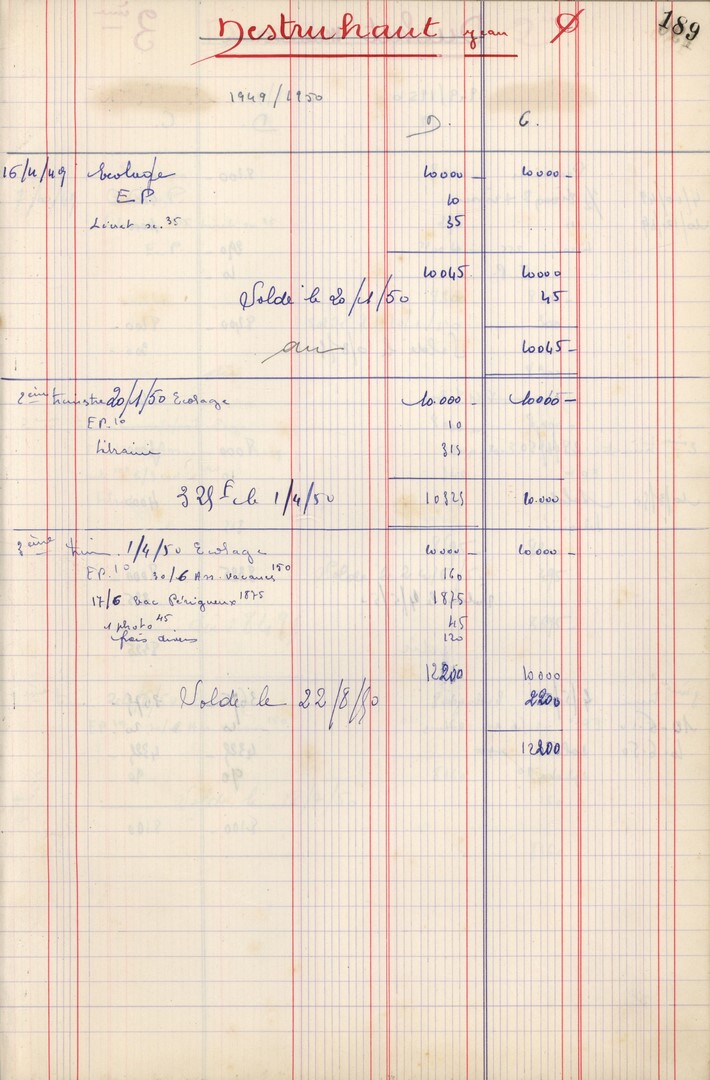 Destruhaut Jean
189
1949/1950
D. C.
Ecolage 10000 - 10000 -
E.P. 10
Livret sc. 35 35
10045 10000
Solde le 20/1/50 45
10045 -
2ème trimstre 20/1/50 Ecolage 10.000 - 10000 -
EP. 10 10
Librairie 315
325 F le 1/4/50 10325 10.000
3ème trim. 1/4/50 Ecolage 10000 - 10000 -
EP. 10 30/6 Ass. vacances 150 160
17/6 bac Périgueux 1875 1875
1 photo 45 45
frais divers 120
12200 10000
Solde le 22/8/50 2200
12200